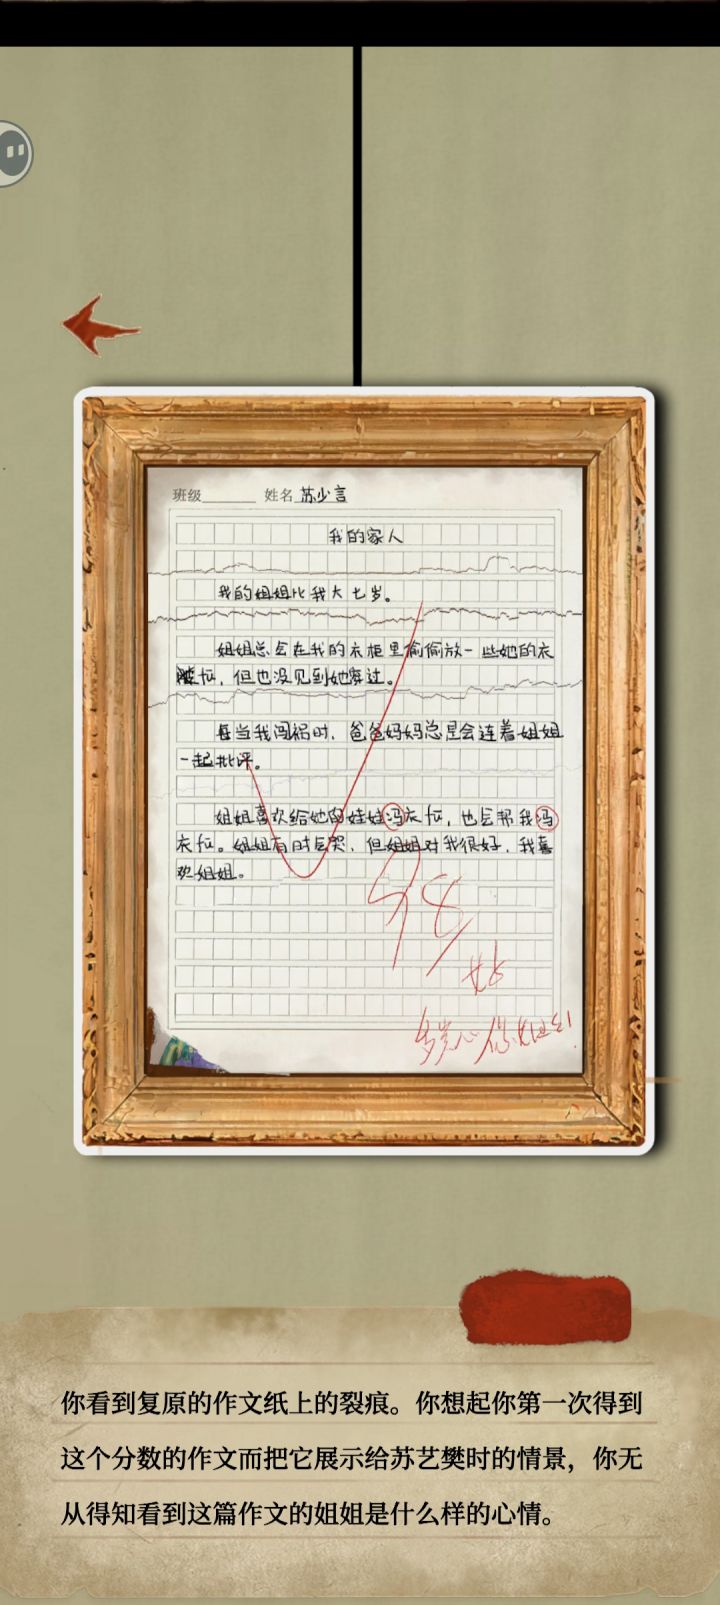 班级 姓名 苏少言
我的家人
我的姐姐比我大七岁。
姐姐总会在我的衣柜里偷偷放一些她的衣
服，但也没见到她穿过。
每当我闯祸时，爸爸妈妈总是会连着姐姐
一起批评。
姐姐喜欢给她的娃娃冯衣服，也会帮我冯
衣服。姐姐有时会哭，但姐姐对我很好，我喜
欢姐姐。
98
好
你看到复原的作文纸上的裂痕。你想起你第一次得到
这个分数的作文而把它展示给苏艺樊时的情景，你无
从得知看到这篇作文的姐姐是什么样的心情。